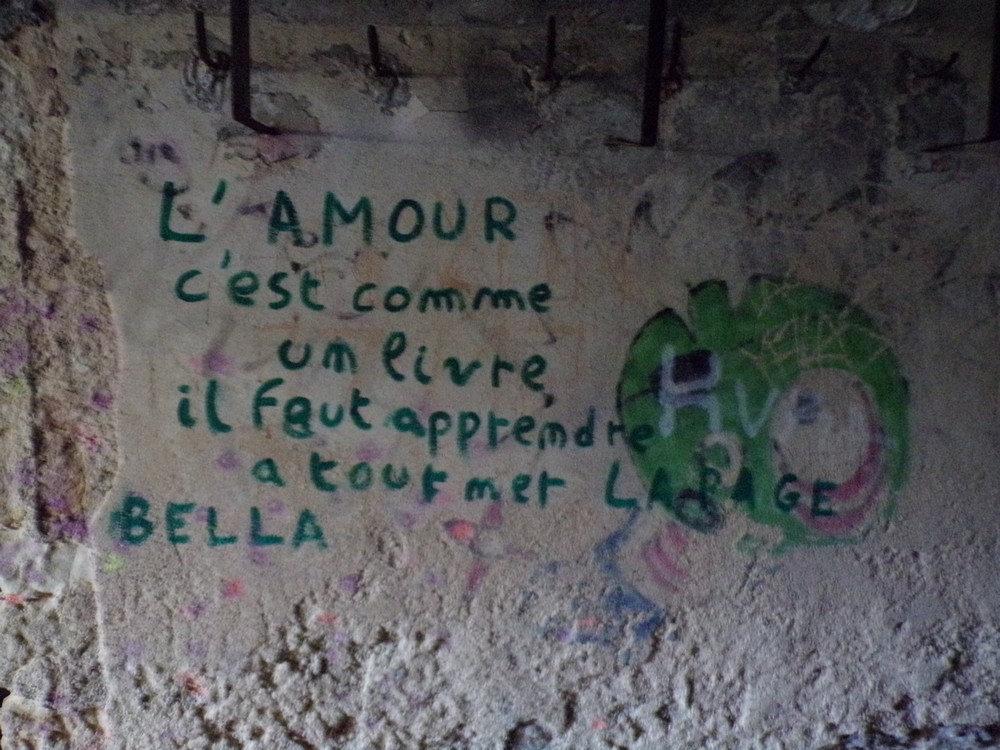 L'AMOUR
c'est comme
un livre,
il faut apprendre
a tourner LA PAGE
BELLA